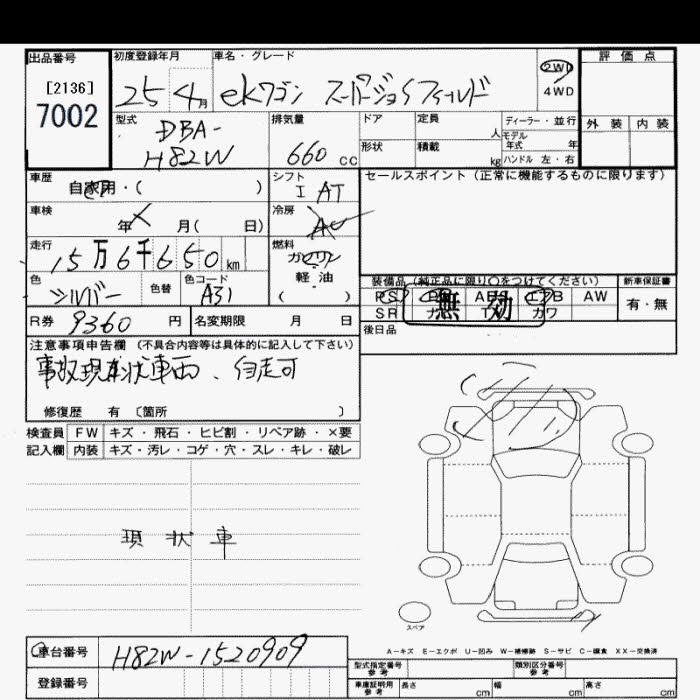 出品番号 初度登録年月 車名・グレード 評価点
[2136] 25 4月 ekワゴン 2WD
7002 4WD
型式 排気量 ドア 定員 人 ディーラー・並行 外装 内装
DBA- 660cc 形状 積載 kg モデル年式 年
H82W ハンドル 左・右
車歴 シフト セールスポイント(正常に機能するものに限ります)
自家用・( ) I AT
車検 年 月( 日) 冷房 AC
走行 15万6千650km 燃料 ガソリン
軽・油
( )
色 シルバー 色替 色コード A31
装備品(純正品に限り〇をつけてください) 新車保証書
PS PW ABS エアB AW 有・無
SR ナビ TV カワ
無効
R券 9360円 名変期限 月 日 後日品
注意事項申告欄(不具合内容等は具体的に記入して下さい)
事故現状車両、自走可
修復歴 有〔箇所 〕
検査員 FW キズ・飛石・ヒビ割・リペア跡・×要
記入欄 内装 キズ・汚レ・コゲ・穴・スレ・キレ・破レ
現状車
スペア
A-キズ E-エクボ U-凹み W-補修跡 S-サビ C-腐食 XX-交換済
車台番号 H82W-1520909 型式指定番号 参考 類別区分番号 参考
登録番号 車庫証明用 参考 長さ cm 幅 cm 高さ cm